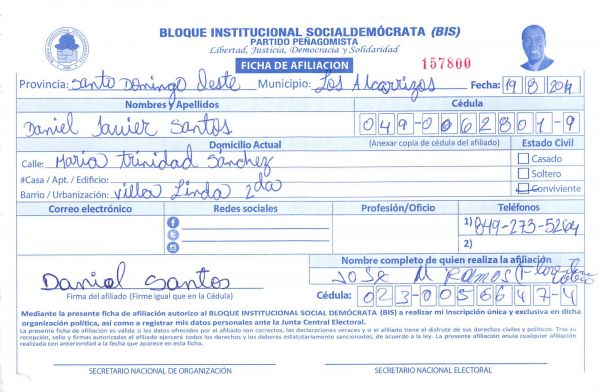 BLOQUE INSTITUCIONAL SOCIALDEMÓCRATA (BIS)
PARTIDO PEÑAGOMISTA
Libertad, Justicia, Democracia y Solidaridad
FICHA DE AFILIACION
157800
Provincia: Santo Domingo Oeste Municipio: Los Alcarrizos Fecha: 19 8 2014
Nombres y Apellidos Cédula
Daniel Javier Santos 049-0062801-9
Domicilio Actual (Anexar copia de cédula del afiliado) Estado Civil
Calle: Maria Trinidad Sanchez Casado
#Casa / Apt. / Edificio: Soltero
Barrio / Urbanización: Villa Linda 2da Conviviente
Correo electrónico Redes sociales Profesión/Oficio Teléfonos
1) 849-273-5264
2)
Nombre completo de quien realiza la afiliación
Jose M Ramos
Daniel Santos
Firma del afiliado (Firme igual que en la Cédula) Cédula: 023-0056647-4
Mediante la presente ficha de afiliación autorizo al BLOQUE INSTITUCIONAL SOCIAL DEMÓCRATA (BIS) a realizar mi inscripción única y exclusiva en dicha
organización política, así como a registrar mis datos personales ante la Junta Central Electoral.
La presente ficha de afiliación es válida si los datos ofrecidos por el afiliado son correctos, las declaraciones veraces y si el afiliado tiene el disfrute de sus derechos civiles y políticos. Tras su
recepción, sello y firmas autorizadas el afiliado ejercerá todos los derechos y los deberes estatutariamente sancionados, de acuerdo a la ley. La presente afiliación anula cualquier afiliación
realizada con anterioridad a la fecha que aparece en esta ficha.
SECRETARIO NACIONAL DE ORGANIZACIÓN SECRETARIO NACIONAL ELECTORAL